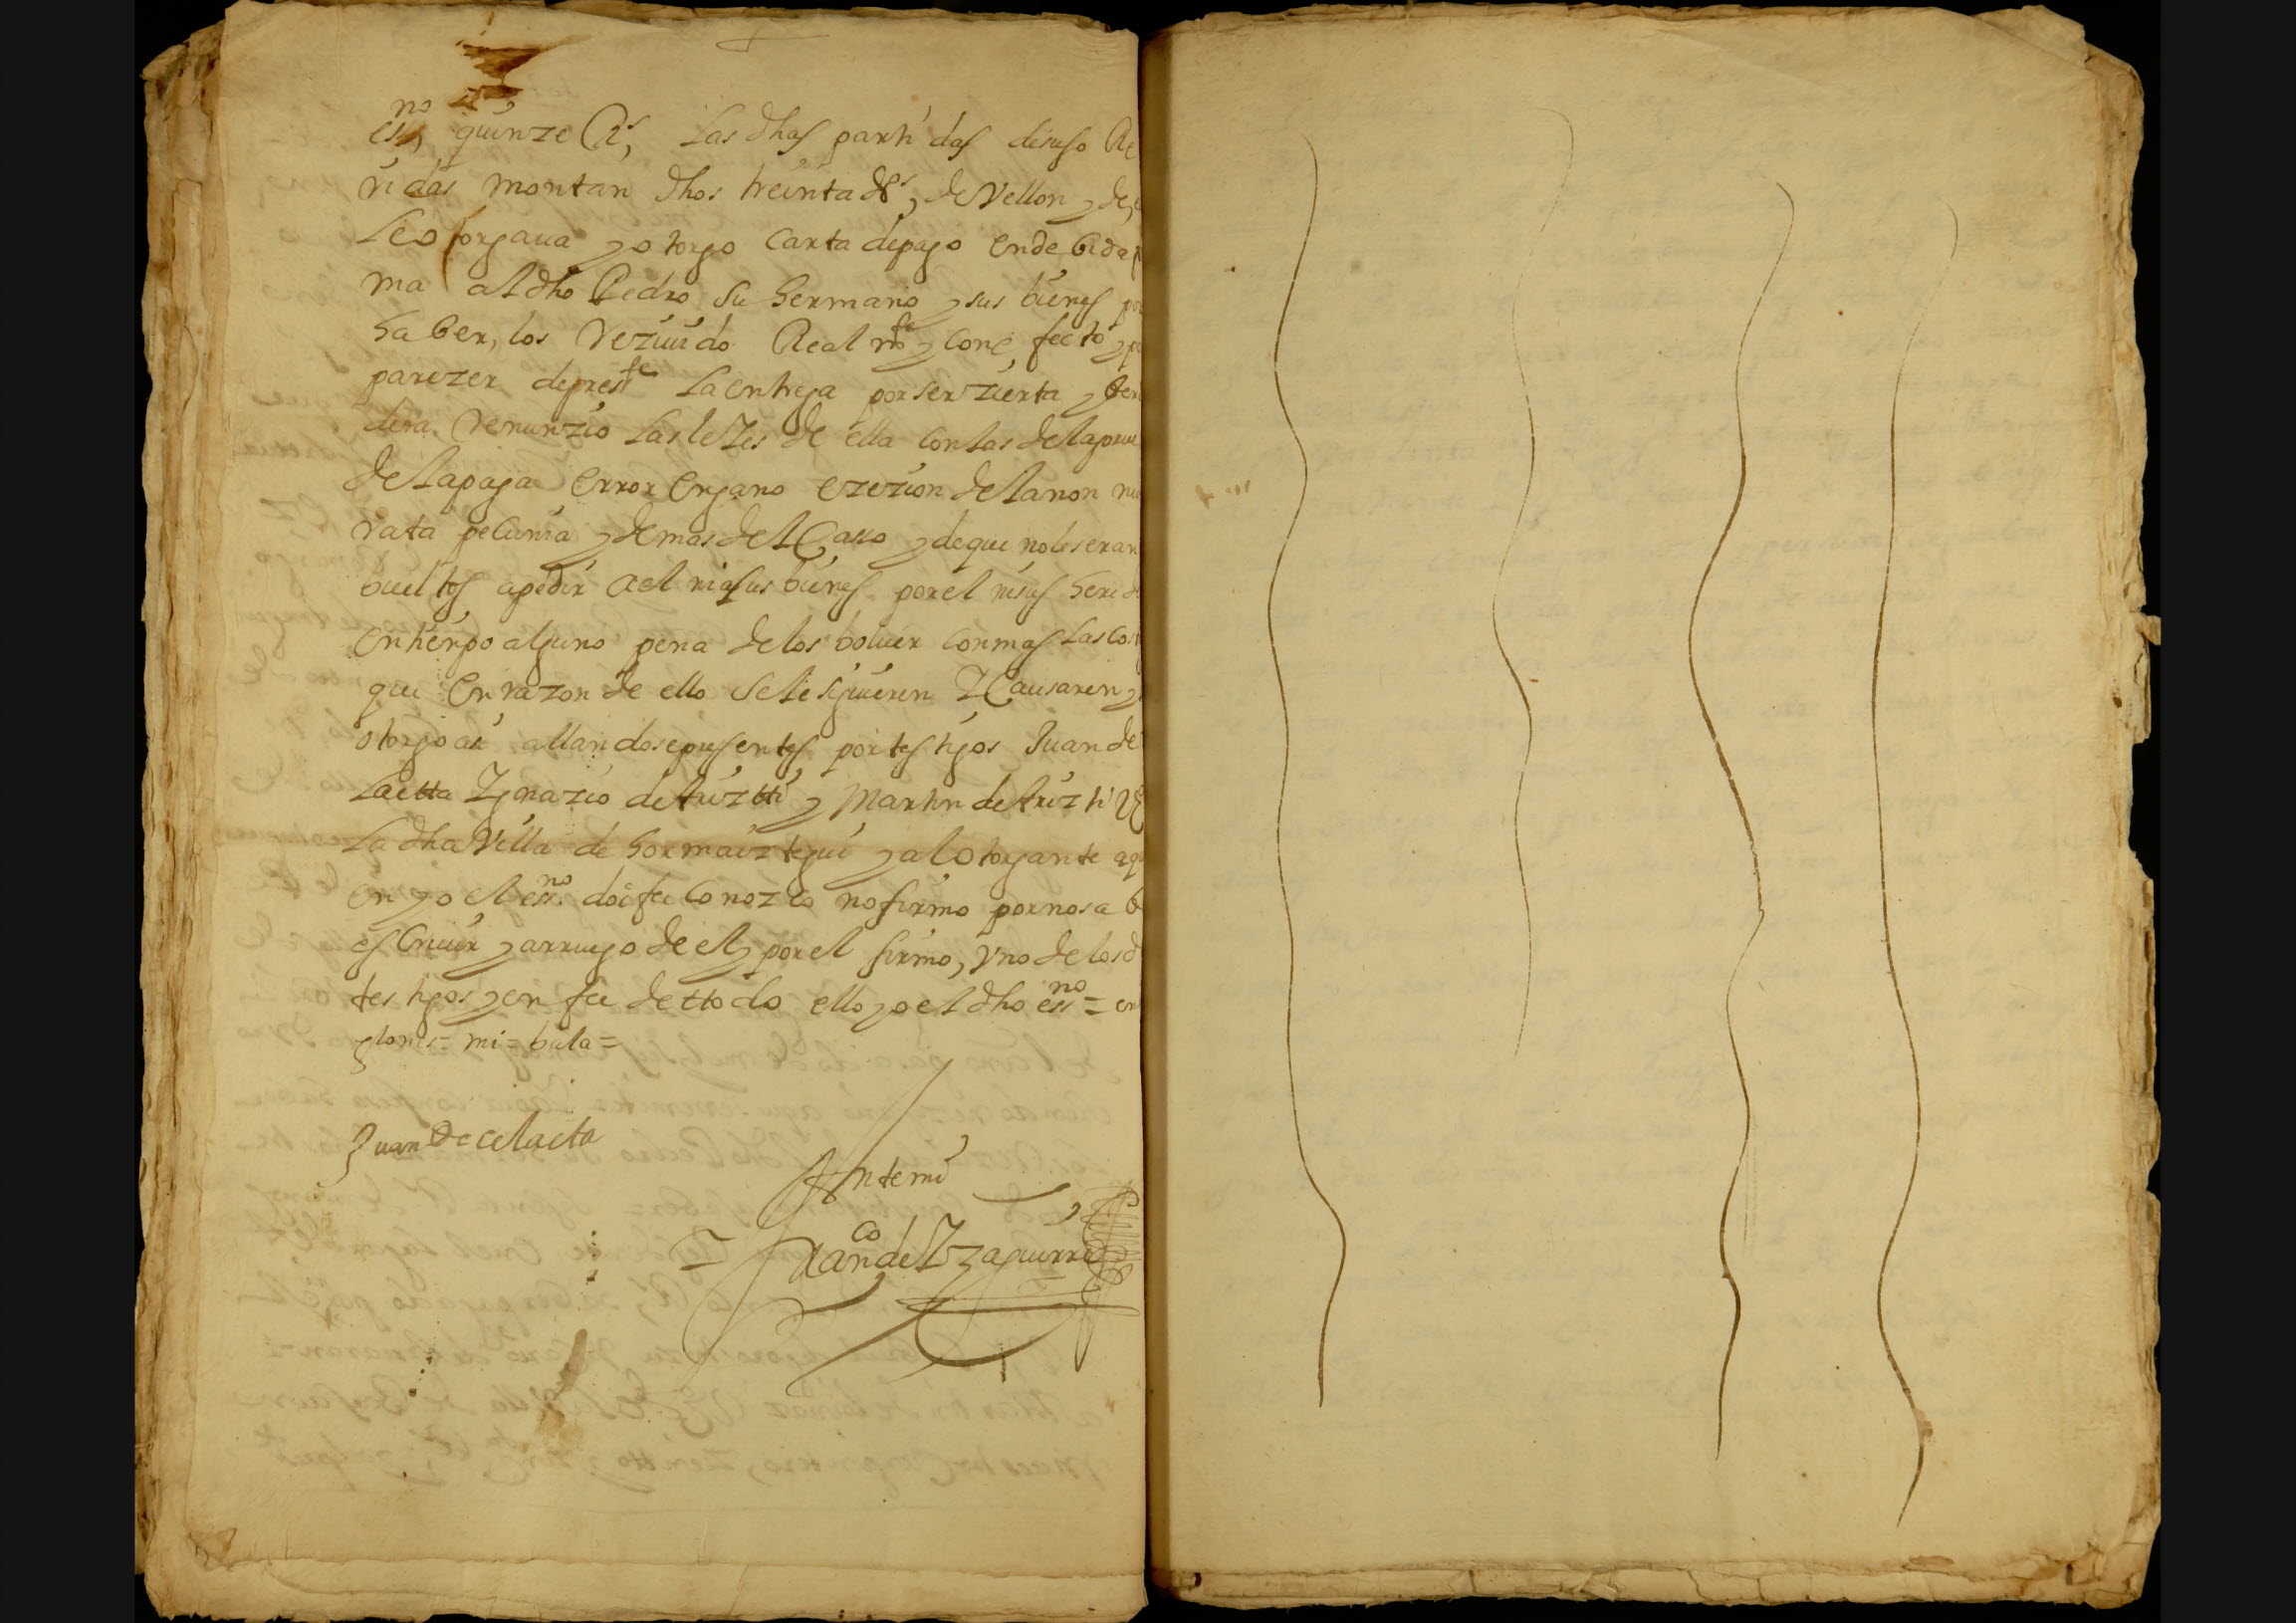 essno quinze Rs, Las dhas partidas desuso Re
vidas montan dhos treinta ds, de Vellon y de
Leotorgaua y otorgo Carta de pago en debida
ma al dho Pedro su hermano y sus bienes por
haber, los rezuuido Real mte y con efecto y
parezer de preste La entrega por ser zierta y ber
dera renunzio Las leies de ella con las de la prue
de la paga error engano ezezion de la non nu
rata pecunia y demas del Casso y de que no les eran
bueltos a pedir a el ni a sus bienes por el ni sus here
en tienpo alguno pena de los boluer con mas Las cos
que en razon de ello se le siguieren Y Causaren y
otorgo asi allandose presentes por testigos Juan de
Laetta Ygnazio de Ariztti y Martin de Arizti
La dha Villa de hormaiztegui y al otorgante aqu
en yo el essno doi fee Conozco no firmo por no sa
escriuir y a rruego de el y por el firmo, Vno de los d
testigos y en fee de ttodo ello yo el dho essno = en
glones = mi = bala =
Juan de celaeta
Ante mi
Franco de Yzaguirre